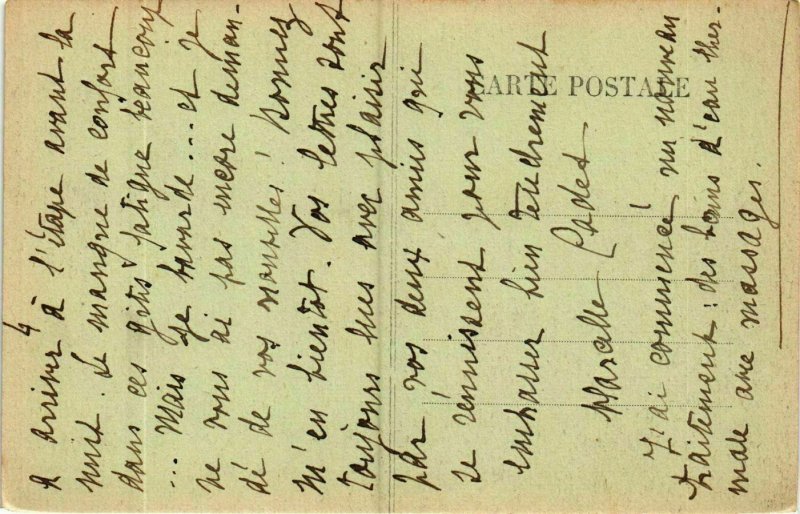 CARTE POSTALE
a arriver à l'étape avant la
nuit. Le manque de confort
dans ces gîtes fatigue beaucoup
... Mais je bavarde... et je
ne vous ai pas encore deman-
dé de vos nouvelles! Donnez
m'en bientôt. Vos lettres sont
toujours lues avec plaisir
par vos deux amies qui
se réunissent pour vous
embrasser bien tendrement
Marcelle
J'ai commencé un nouveau
traitement: des bains d'eau ther-
male avec massages.